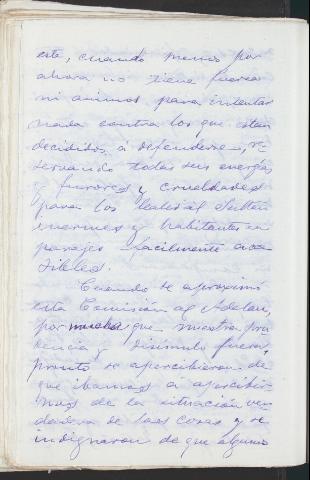 este, cuando menos por
ahora no tiene fuerza
ni animos para intentar
nada contra los que estan
decididos á defenderse, re
servando todas sus energias
y furores y crueldades
para los leales al Sultan
inermes y habitantes en
parajes facilmente acce
sibles.
Cuando se aproximó
esta Comisión al Adelau,
por mucha que nuestra pru
dencia y disimulo fueran,
pronto se apercibieron de
que ibamos á apercibir
nos de la situación ver
dadera de las cosas y se
indignaron de que alguno